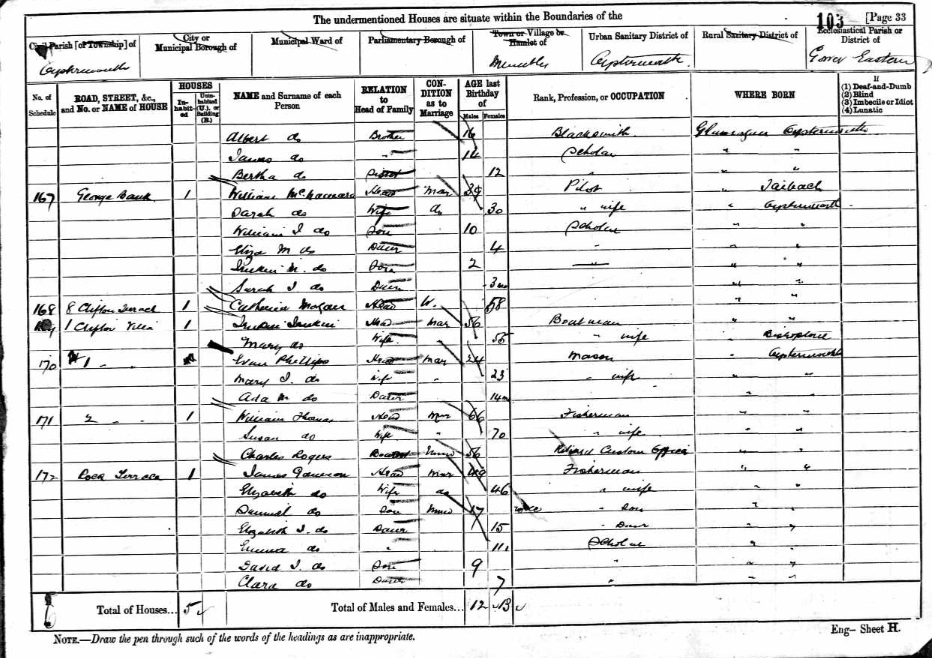 The undermentioned Houses are situate within the Boundaries of the
103 [Page 33
Civil Parish [or Township] of
City or Municipal Borough of
Municipal Ward of
Parliamentary Borough of
Town or Village or Hamlet of
Urban Sanitary District of
Rural Sanitary District of
Ecclesiastical Parish or District of
Oystermouth Mumbles Oystermouth Gower Eastern
No. of Schedule
ROAD, STREET, &c., and No. or NAME of HOUSE
HOUSES
In-habit-ed
Unin-habited (U.), or Building (B.)
NAME and Surname of each Person
RELATION to Head of Family
CON-DITION as to Marriage
AGE last Birthday of
Males Females
Rank, Profession, or OCCUPATION
WHERE BORN
If
(1) Deaf-and-Dumb
(2) Blind
(3) Imbecile or Idiot
(4) Lunatic
Albert do Brother 16 Blacksmith Glamorgan Oystermouth
James do " 14 Scholar " "
Bertha do 12 " "
167 George Bank 1 William Head Mar 39 Pilot " Taibach
Sarah do Wife do 30 " wife " Oystermouth
William J. do Son 10 Scholar " "
Eliza M. do Daur 4 " " "
Jenkin M. do Son 2 — " "
Sarah J. do Daur 3 mo " "
168 8 Clifton Terrace 1 Catherine Head W. 58 " "
169 1 Clifton Villa 1 Jenkin Jenkins Head Mar 56 Boatman " "
Mary do Wife 55 " wife " Bishopston
170 1 " " Evan Phillips Head Mar 24 Mason " Oystermouth
Mary J. do Wife " 23 " wife " "
Ada M. do Daur 14 mo "
171 2 " " 1 William Thomas Head Mar 66 Fisherman " "
Susan do Wife " 70 " wife " "
Charles Rogers Boarder 56 Retired Custom Officer
172 Rock Terrace 1 James Head Mar 49 Fisherman " "
Elizabeth do Wife do 46 " wife " "
Samuel do Son 17 " Son " "
Elizabeth J. do Daur 15 " Daur " "
Emma do " 11 Scholar " "
David J. do Son 9 " " "
Clara do Daur 7 " " "
Total of Houses... 5
Total of Males and Females... 12 13
NOTE.—Draw the pen through such of the words of the headings as are inappropriate.
Eng— Sheet H.